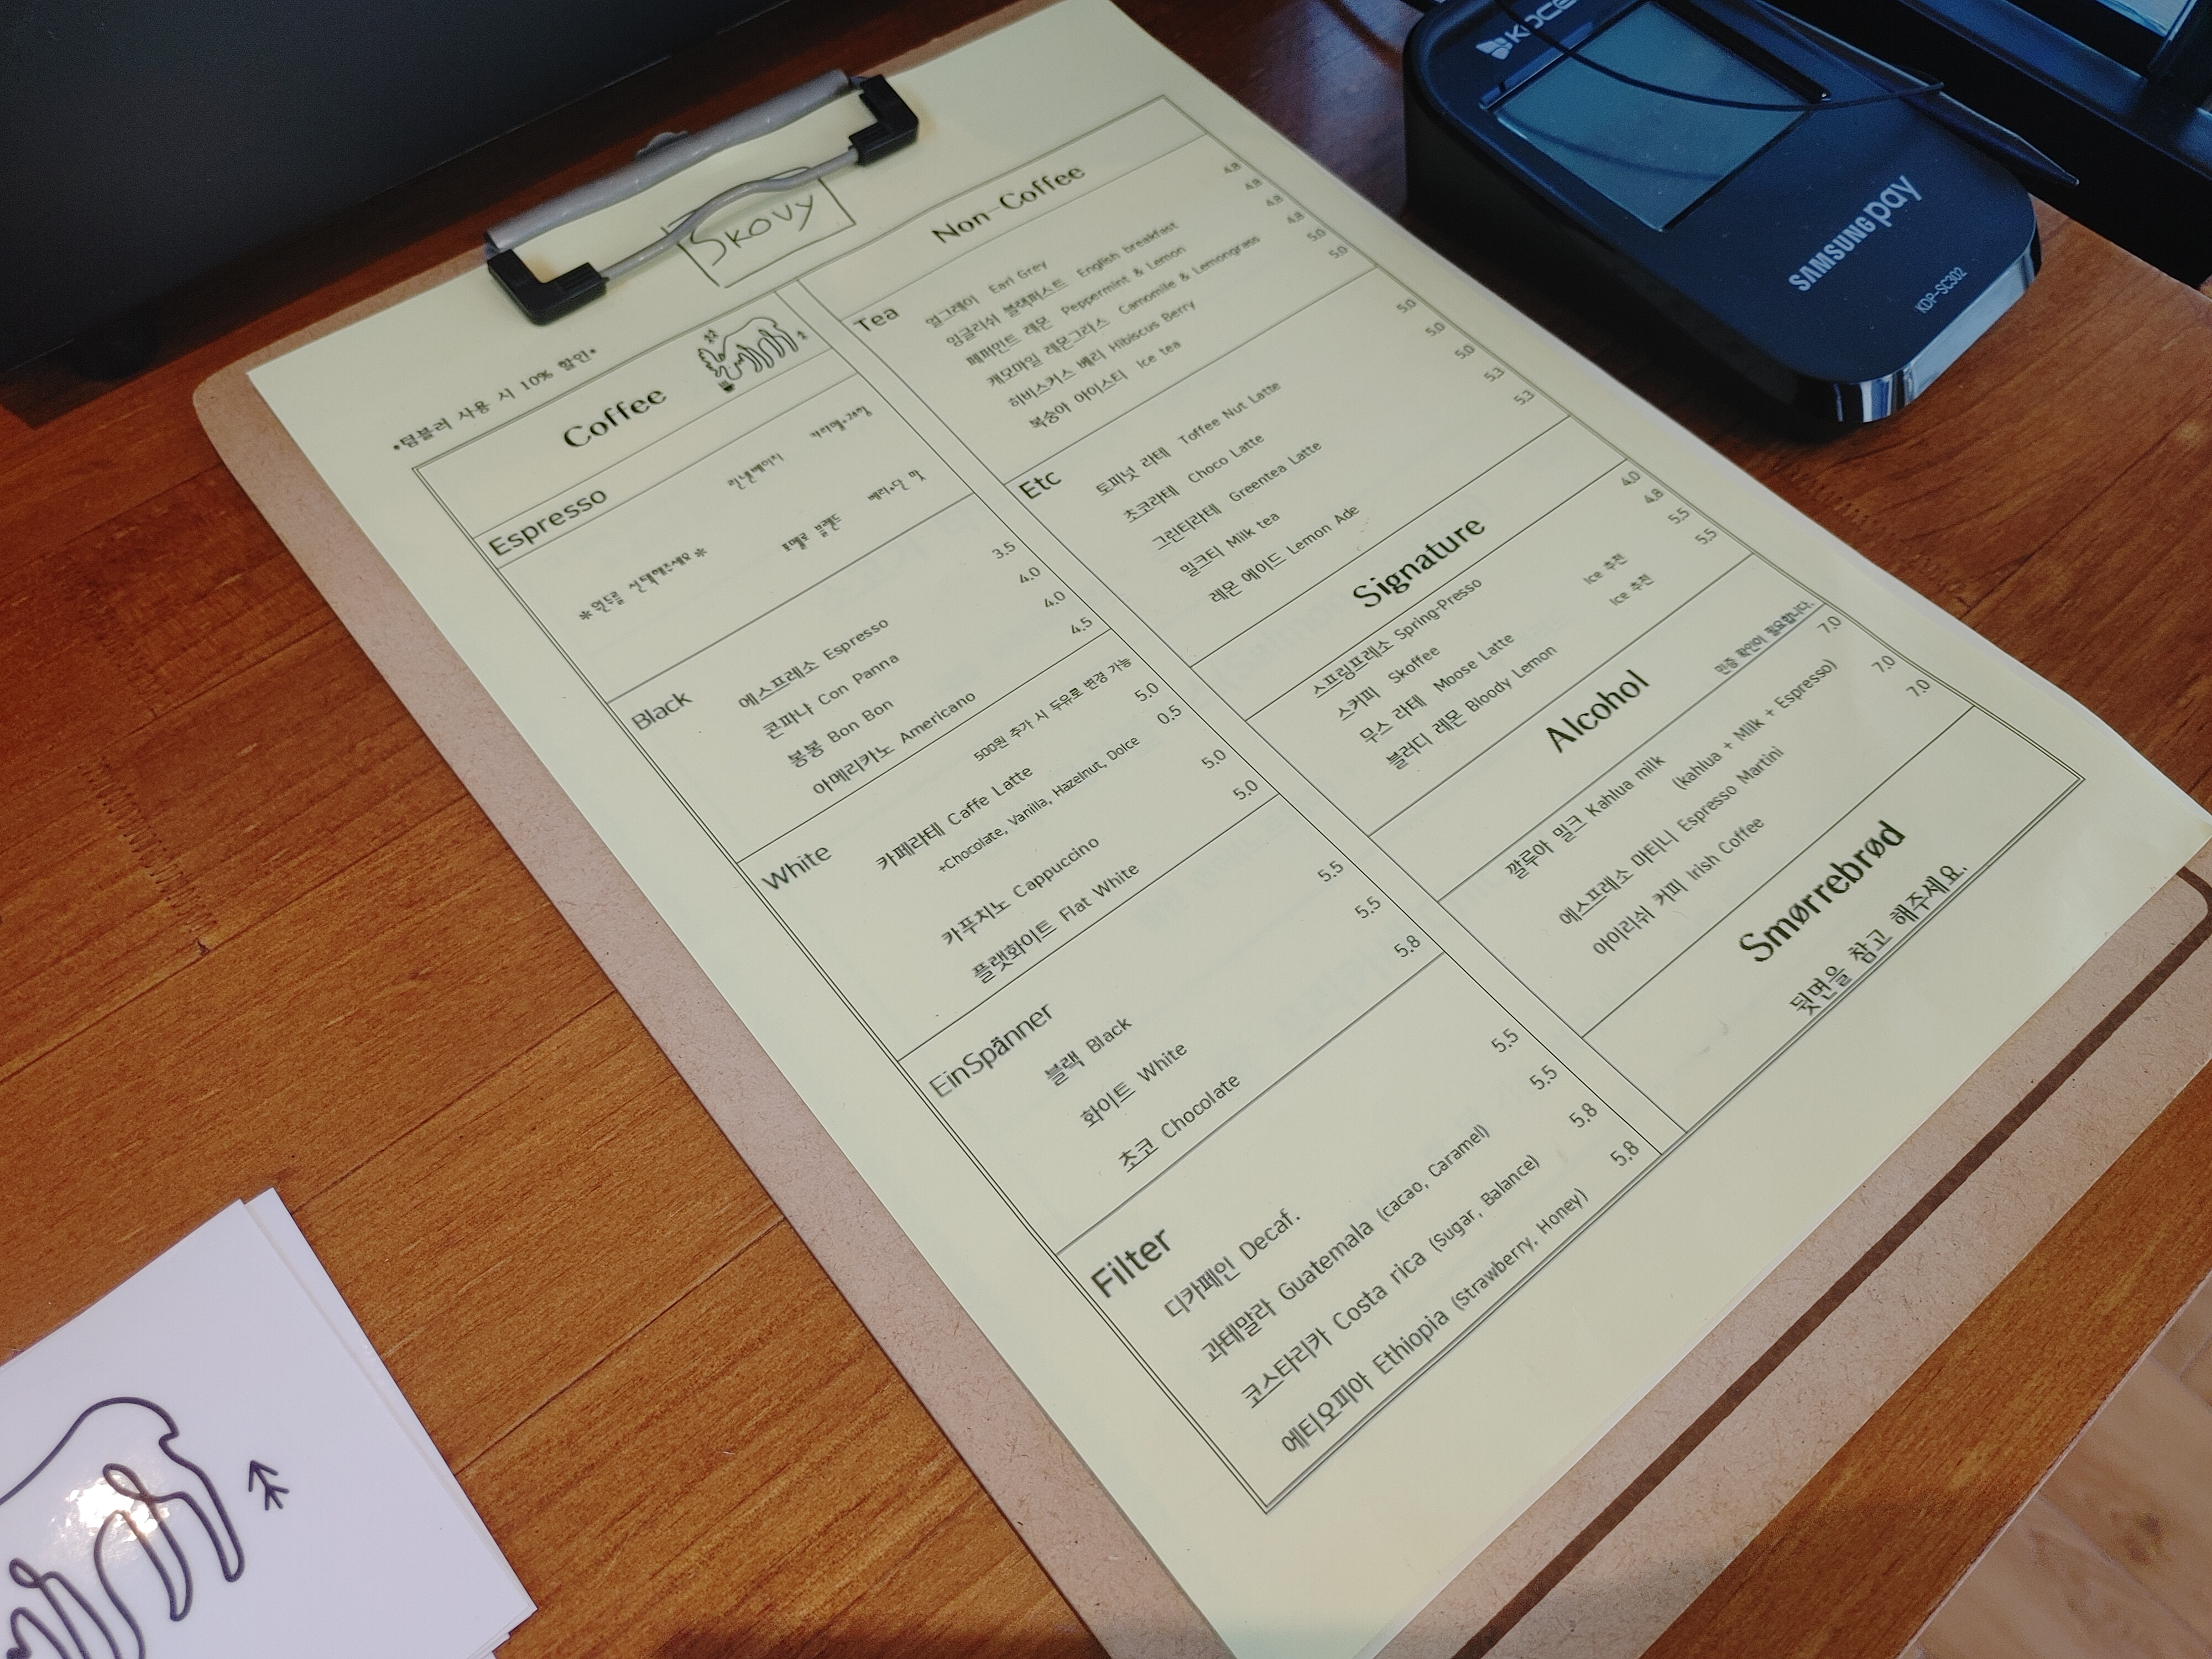 SKOVY
•텀블러 사용 시 10% 할인•
Coffee
Espresso
*원두를 선택해주세요*
린넨베이지
카라멜+과일
포멜로 블렌드
Black
에스프레소 Espresso 3.5
콘파냐 Con Panna 4.0
봉봉 Bon Bon 4.0
아메리카노 Americano 4.5
White
500원 추가 시 두유로 변경 가능
카페라테 Caffe Latte 5.0
+Chocolate, Vanilla, Hazelnut, Dolce 0.5
카푸치노 Cappuccino 5.0
플랫화이트 Flat White 5.0
EinSpänner
블랙 Black 5.5
화이트 White 5.5
초코 Chocolate 5.8
Filter
디카페인 Decaf. 5.5
과테말라 Guatemala (cacao, Caramel) 5.5
코스타리카 Costa rica (Sugar, Balance) 5.8
에티오피아 Ethiopia (Strawberry, Honey) 5.8
Non-Coffee
Tea
얼그레이 Earl Grey 4.8
잉글리쉬 블랙퍼스트 English breakfast 4.8
페퍼민트 레몬 Peppermint & Lemon 4.8
캐모마일 레몬그라스 Camomile & Lemongrass 4.8
히비스커스 베리 Hibiscus Berry 5.0
복숭아 아이스티 Ice tea 5.0
Etc
토피넛 라테 Toffee Nut Latte 5.0
초코라테 Choco Latte 5.0
그린티라테 Greentea Latte 5.0
밀크티 Milk tea 5.3
레몬 에이드 Lemon Ade 5.3
Signature
스프링프레소 Spring-Presso 4.0
스커피 Skoffee 4.8
무스 라테 Moose Latte Ice 추천 5.5
블러디 레몬 Bloody Lemon Ice 추천 5.5
Alcohol
민증 확인이 필요합니다.
깔루아 밀크 Kahlua milk 7.0
(kahlua + Milk + Espresso)
에스프레소 마티니 Espresso Martini 7.0
아이리쉬 커피 Irish Coffee 7.0
Smørrebrød
뒷면을 참고 해주세요.
SAMSUNG pay
KDP-SC302